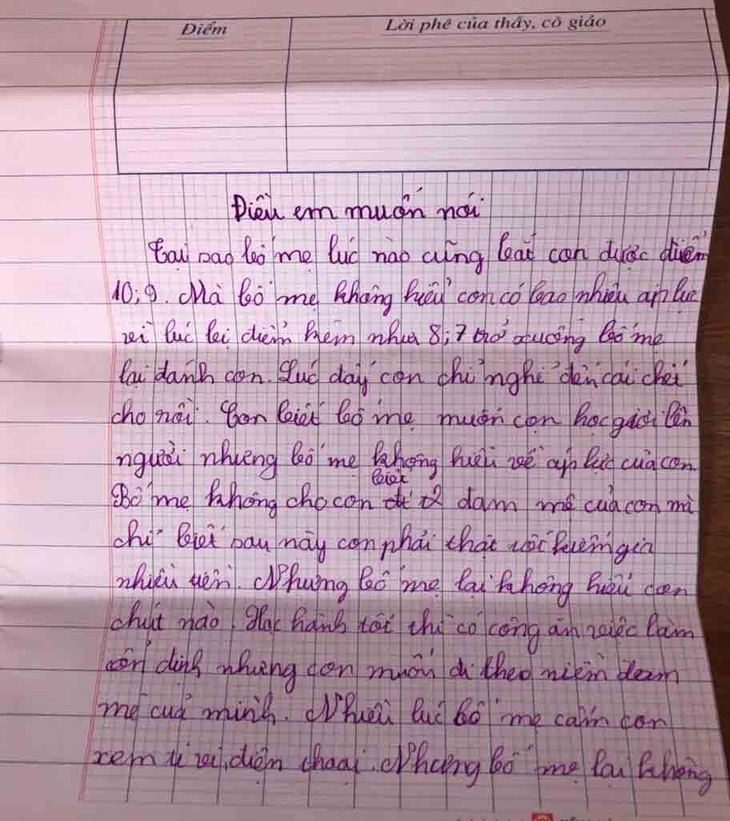 Điểm
Lời phê của thầy, cô giáo
Điều em muốn nói
Tại sao bố mẹ lúc nào cũng bắt con được điểm
10; 9. Mà bố mẹ không hiểu con có bao nhiêu áp lực
vì lúc bị điểm kém như 8; 7 trở xuống bố mẹ
lại đánh con. Lúc đấy con chỉ nghĩ đến cái chết
cho rồi. Con biết bố mẹ muốn con học giỏi lên
người nhưng bố mẹ không hiểu về áp lực của con.
Bố mẹ không cho con biết đam mê của con mà
chỉ biết sau này con phải thật kiếm
nhiều tiền. Nhưng bố mẹ lại không hiểu con
chút nào. Học hành tốt thì có công ăn việc làm
ổn định nhưng con muốn đi theo niềm đam
mê của mình. Nhiều lúc bố mẹ cấm con
xem ti vi, điện thoại. Nhưng bố mẹ lại không